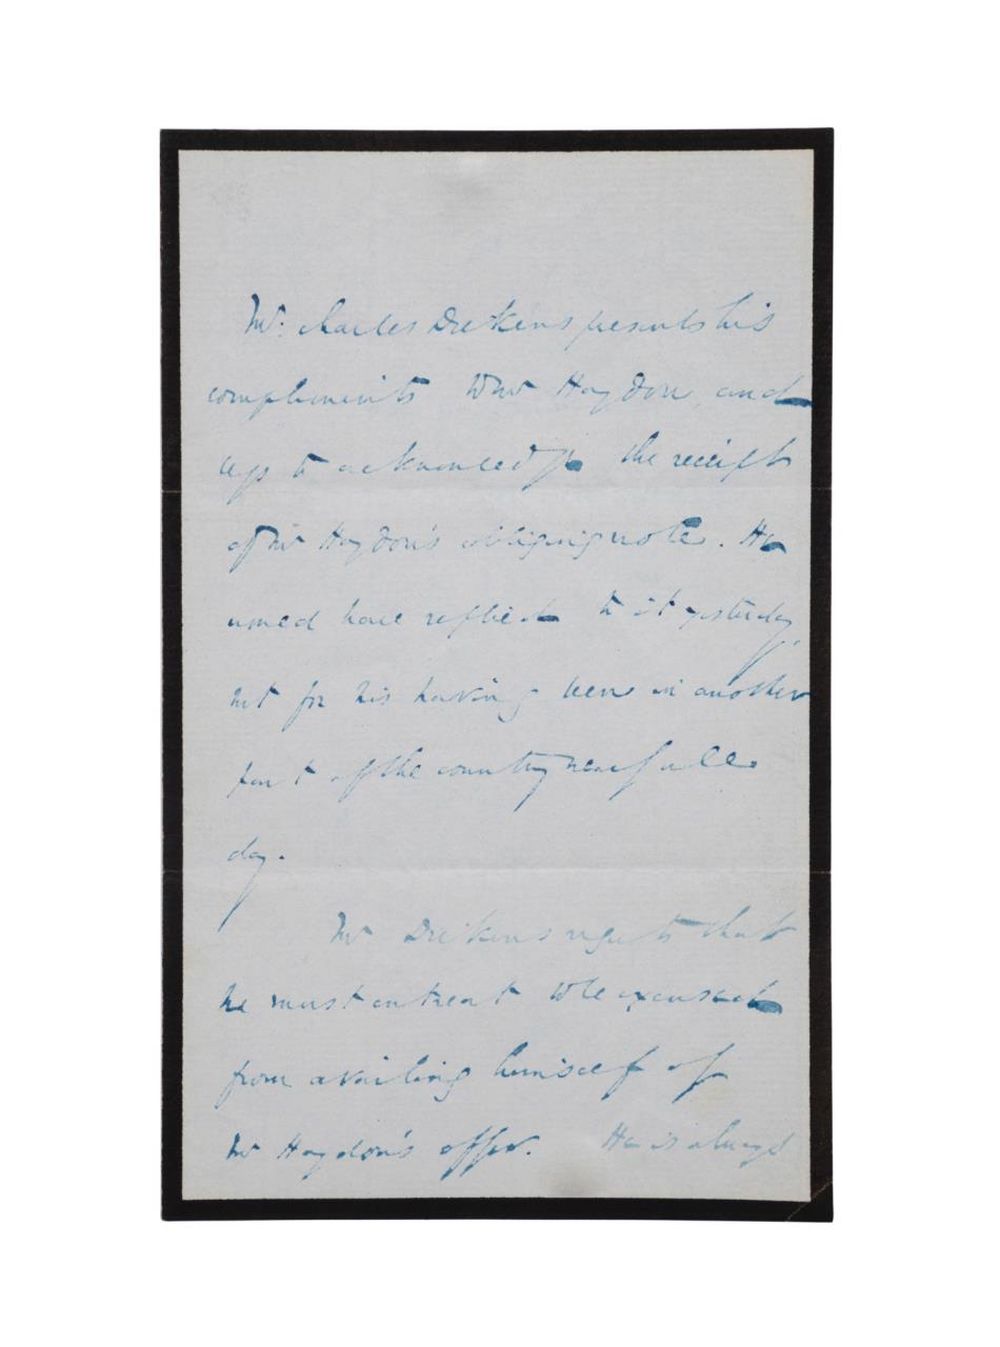 Mr. Charles Dickens presents his
compliments to Mr Haydon and
begs to acknowledge the receipt
of Mr Haydon's obliging note. He
would have replied to it yesterday
but for his having been in another
part of the country nearly all
day.
Mr Dickens regrets that
he must entreat to be excused
from availing himself of
Mr Haydon's offer. He is always